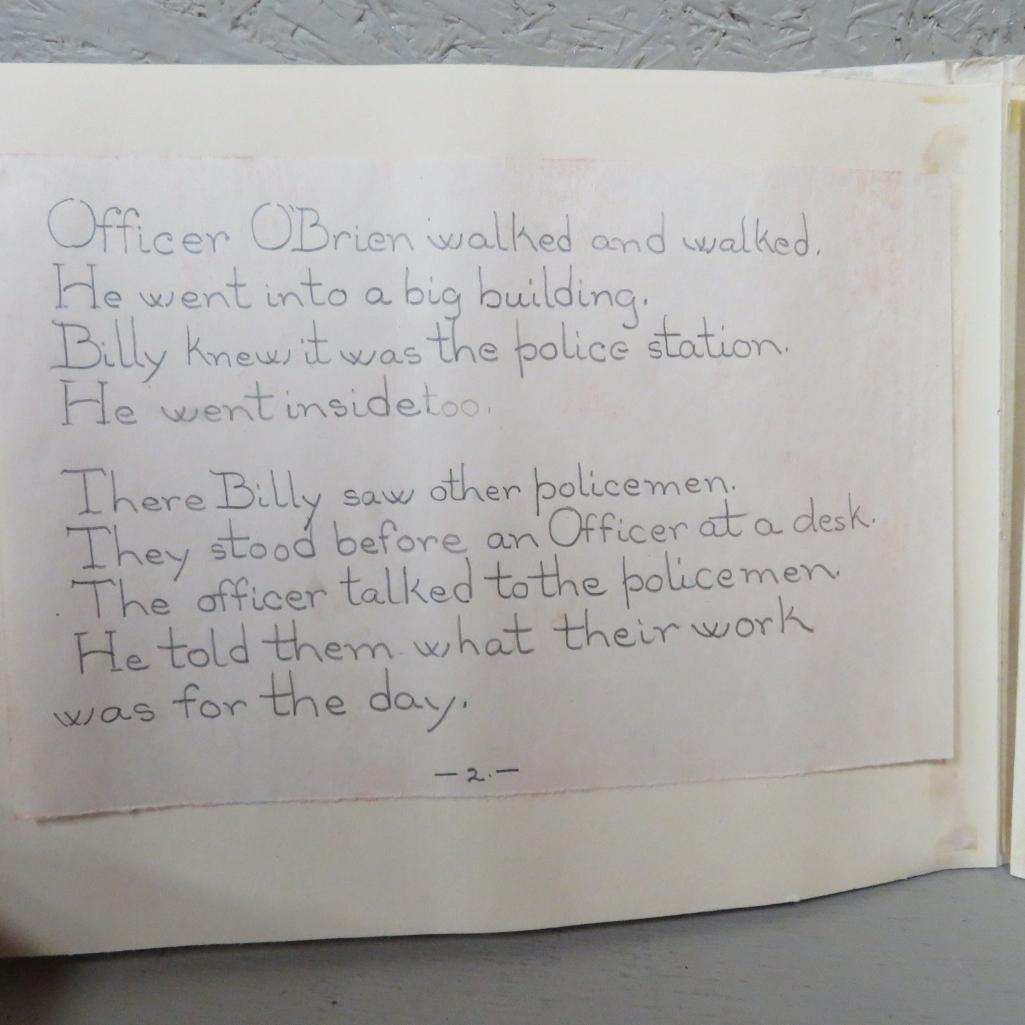 Officer O'Brien walked and walked.
He went into a big building.
Billy knew it was the police station.
He went inside too.
There Billy saw other policemen.
They stood before an Officer at a desk.
The officer talked to the policemen.
He told them what their work
was for the day.
- 2. -